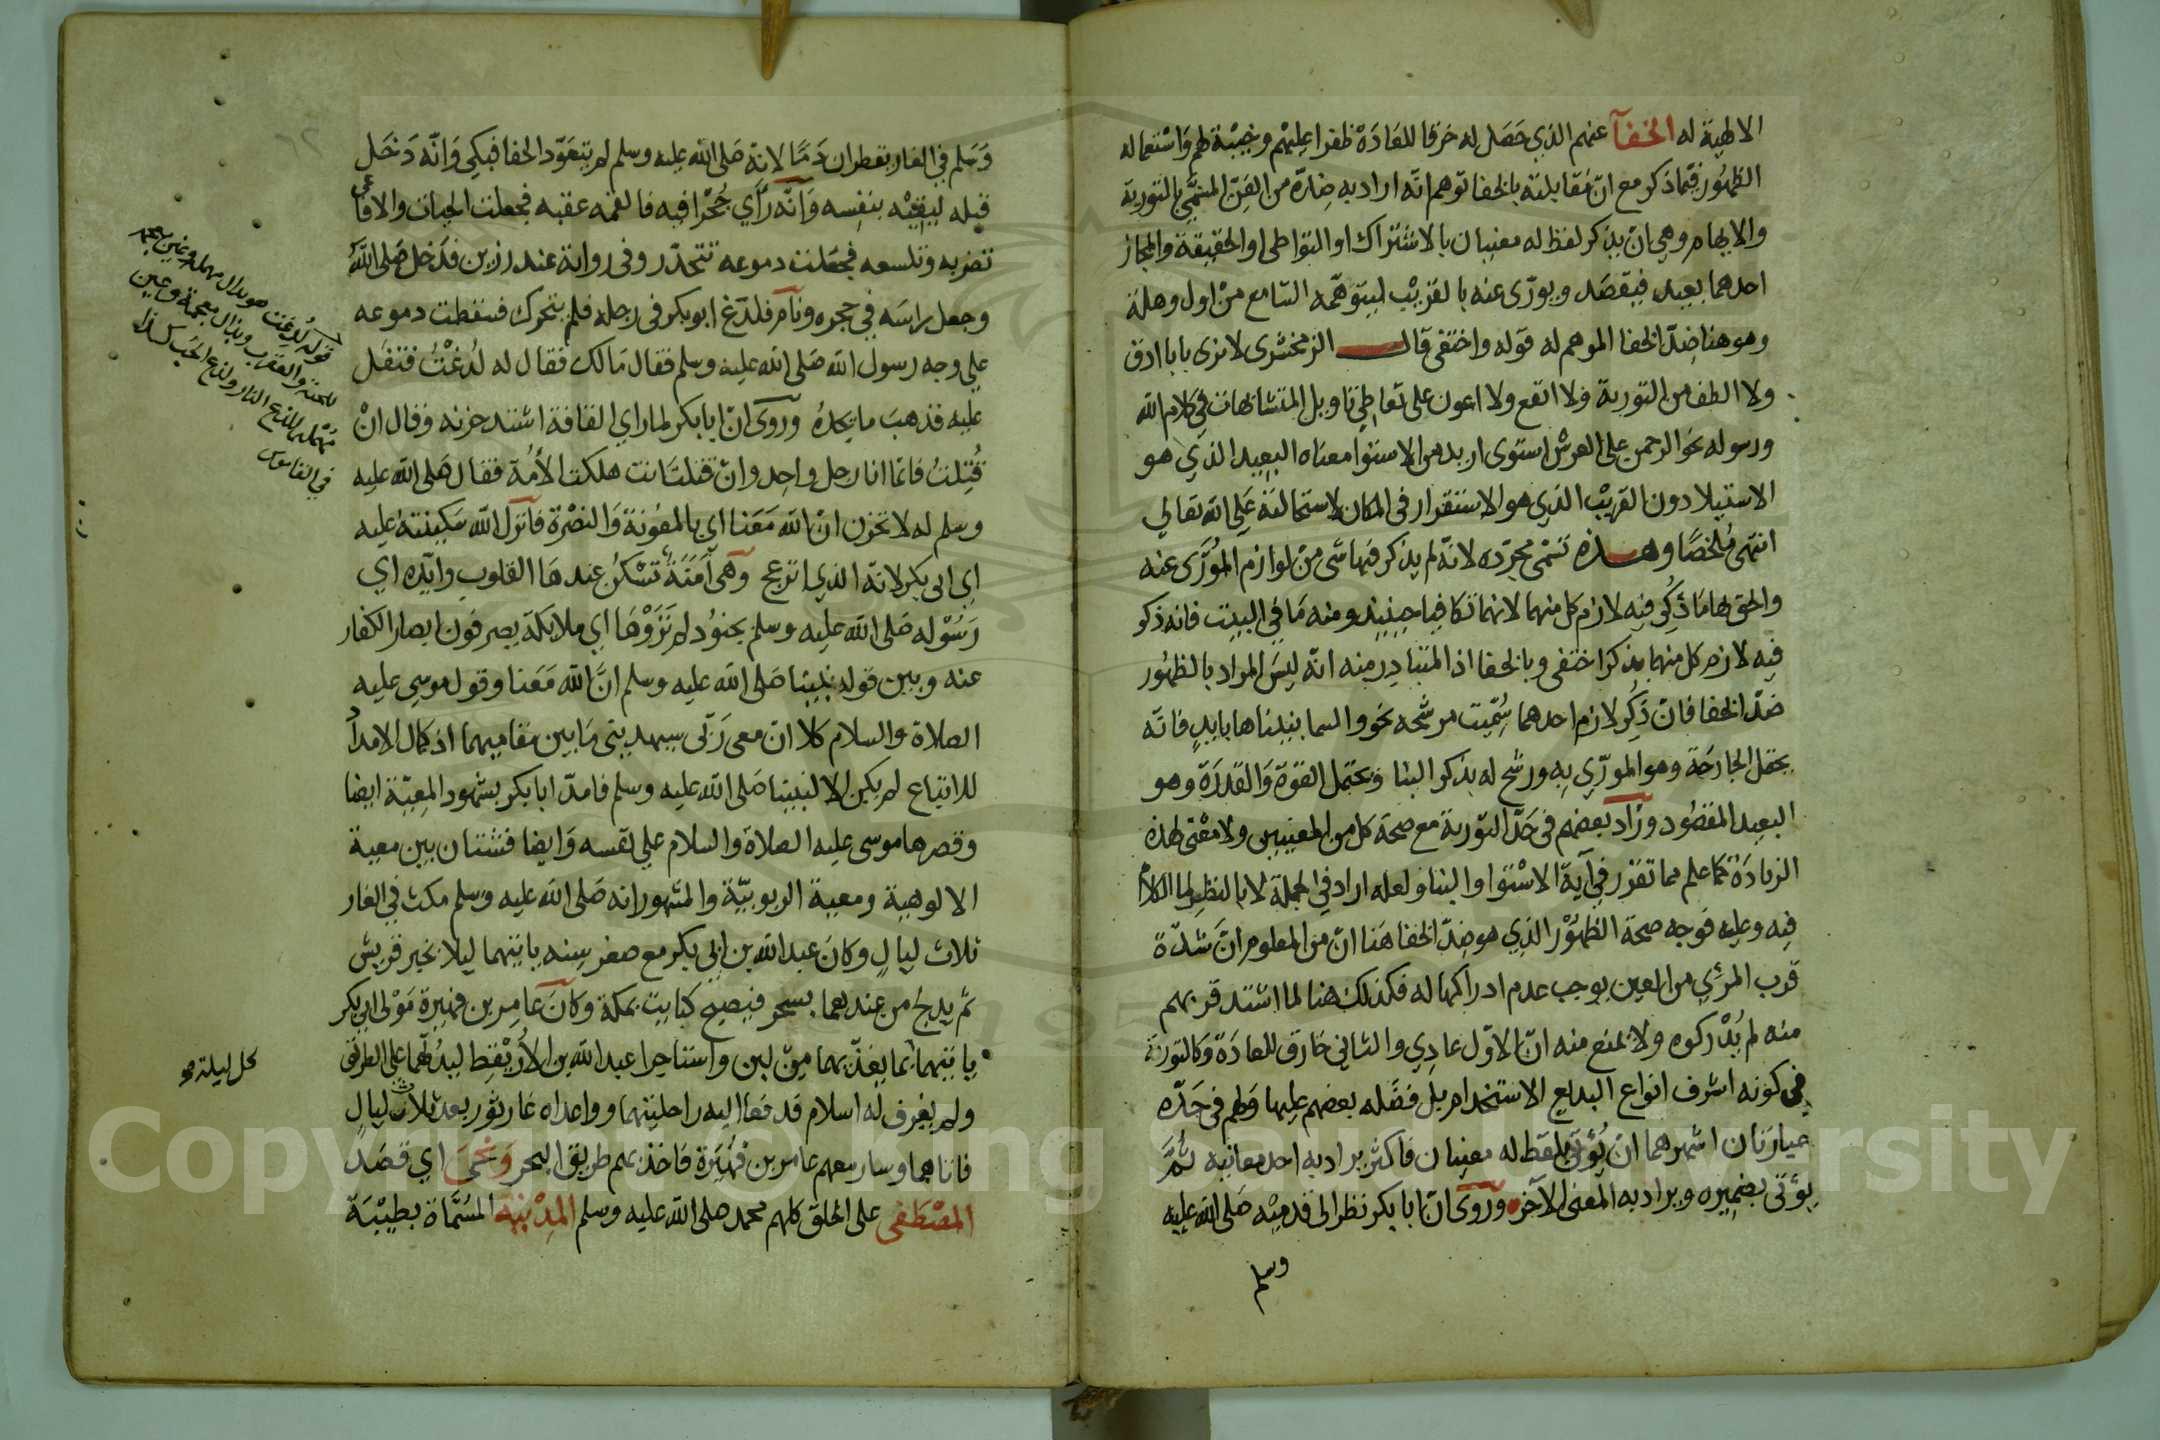 الالهية له الخفآ عنهم الذي حَصَل له خرقا للعَادَة ظفرا عليهم وخيبْة لهم وَاسْتعماله
الظهُور فيما ذكر مع انّ مُقابلته بالخفا توهم انّه اراد به ضدّه من الفنّ المسَمَّى بالتورية
والايهام وهي انْ يذكر لفظ له معنيان بالاشتراك او التواطى او الحقيقة والمجاز
احدهما بعيد فيقصَد ويورّى عنه بالقريْب ليتوهّمه السّامع منْ اول وهلة
وهو هنا ضدّ الخفا الموهم له قوله واختفى قال الزمخشرى لا نرى بابا ادق
ولا الطف من التورية ولا انفع ولا اعون على تعاطِي تاويل المتشابهات في كلام الله
ورسوله نحو الرحمن على العرش استوى اريد من الاستوا معناه البعيد الذي هو
الاستيلا دون القريْب الذي هو الاستقرار فى المكان لاستحالته عَلى الله تعالي
انتهى مُلخصًا وهذه تسَمّى مجرّده لانّه لم يذكر فيها شى منْ لوازم المُورَّى عنه
والحق بها مَا ذُكِرَ فيه لازم كل منهما لانهما تكافيا حينيذ ومنه مَا في البيت فانه ذكر
فيه لازم كل منهما بذكر اختفى وبالخفا اذ المتبادر منه انّه ليسَ المراد بالظهُور
ضدّ الخفا فانْ ذُكِر لازم احدهما سُمّيت مرشحه نحو والسما بنيناها بايدٍ فانّه
يحتمل الجارحَة وهو المورّي به ورشح له بذكر البنا ويحتمل القوّة وَالقدرَة وهو
البعيد المقصُود وزاد بعضهم فى حَدّ التوّرية مع صحة كل من المعنيين ولا معْنى لهذه
الزيادَة كما علم مما تقرر في آية الاسْتوا والبنا ولعله اراد في الجملة لا بالنظر لما الكلام
فيه وعليه فوجه صحة الظهوْر الذي هو ضدّ الخفا هَنا انّ من المعلوم انّ شدّة
قرب المرْئي من العين يوجب عدم ادراكها له فكذلك هنا لما اشتد قربهم
منه لم يُدْركوه ولا يمنع منه انّ الاوّل عادِي والثاني خارق للعادَة وَكالتورية
في كونه اشرف انواع البديع الاستخدام بل فضَّله بعضهم عليها وَلهم فى حَدّه
عبارتان اشهرهما انْ يُؤتى بلفظ له معنيان فاكثر يراد به احد معانيه ثمّ
يؤتى بضميره ويراد به المعنى الآخر وروى انّ ابا بكر نظر الى قدميْه صَلى الله عليه
وسلم
وَسَلم في الغار يقطران دَمًا لانه صَلى الله عليه وسلم لم يتعَوّد الحفا فبكي وَانّه دَخل
قبله ليقيْه بنفسه وَانّه رَأي جُحْرا فيه فالقمه عقبه فجعلت الحيات والافاعى
تضربه وتلسعه فجعَلت دموعه تتحدّر وفى رواية عند رزين فدَخل صَلى الله
وجعل راسَه في حجره ونام فلدغ ابو بكر فى رجله فلم يتحرك فسَقطت دموعه
علي وجه رسول الله صَلى الله عليه وسلم فقال مَا لك فقال له لُدغْتُ فتفل
عليه فذهبَ ما يجدهُ وروي انّ ابا بكر لما راي القافة اشتد حزنه وقال انْ
قُتِلتُ فانّما انا رجل واحِد وانْ قتلتَ انت هلكت الأمّة فقال صَلى الله عليه
وسلم له لا تحزن انّ الله مَعَنا اي بالمعُونة وَالنصْرة فانزل الله سَكينته عليه
اي ابى بكر لانّه الذي انزعج وهى آمَنَةٌ تسْكنُ عندهَا القلوب وايّده اي
رَسُوْله صَلى الله عليه وسلم بجنوُد لم تَرَوْهَا اي ملايكة يصرفون ابصار الكفار
عنه وبين قوله نبينا صَلى الله عليه وسلم انَّ الله مَعَنا وقول موسي عليه
الصلاة والسلام كلا انّ معى رَبّى سيهديني مَا بين مقاميهما اذ كمال الامداد
للاتباع لم يكن الا لنبينا صَلى الله عليه وسلم فامدّ ابا بكر بشهود المعيّة ايضا
وقصرها موسى عليه الصلاة والسلام علي نفسه وَايضا فشتان بين معية
الالوهية ومعية الربوبيّة والمشهور انه صَلى الله عليه وسَلم مكث في الغار
ثلاث ليالٍ وكانَ عبد الله بن ابي بكر مع صغر سِنه ياتيهما ليلا بخبر قريش
ثم يدلجُ من عندهما بسحر فيصبح كبايت بمكة وكانَ عامر بن فهَيرة مَوْلى ابي بكر
ياتيهما بما يغذّيهما منْ لبن واستاجرا عبد الله بن الأرَيْقط ليدُلّهما على الطريق
ولم يعْرف له اسلام فدفعَا اليه راحلتيهما وواعداه غار ثور بعد ثلاث ليالٍ
فاتاهما وسار معهم عامر بن فُهَيْرَة فاخذ بهم طريق البحر وَنحىَ اي قصَدَ
المصْطفى على الخلق كلهم محمد صلى الله عليه وسلم المدْينة المسَمَّاة بطيْبَة
قوله لُدغت هو بدال مهملة وغين معجمه
للحية والعقرب وبذال معجمة وعين
مهمله للذع النار ولذع الحب كذا
في القاموس
كل ليلة صح
Copyright © King Saud University